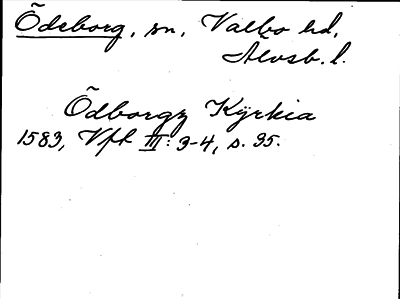 Ödeborg, sn, Valbo hd,
Älvsb. l.
Ödborgz Kÿrkia
1583, Vft III: 3-4, s. 35.